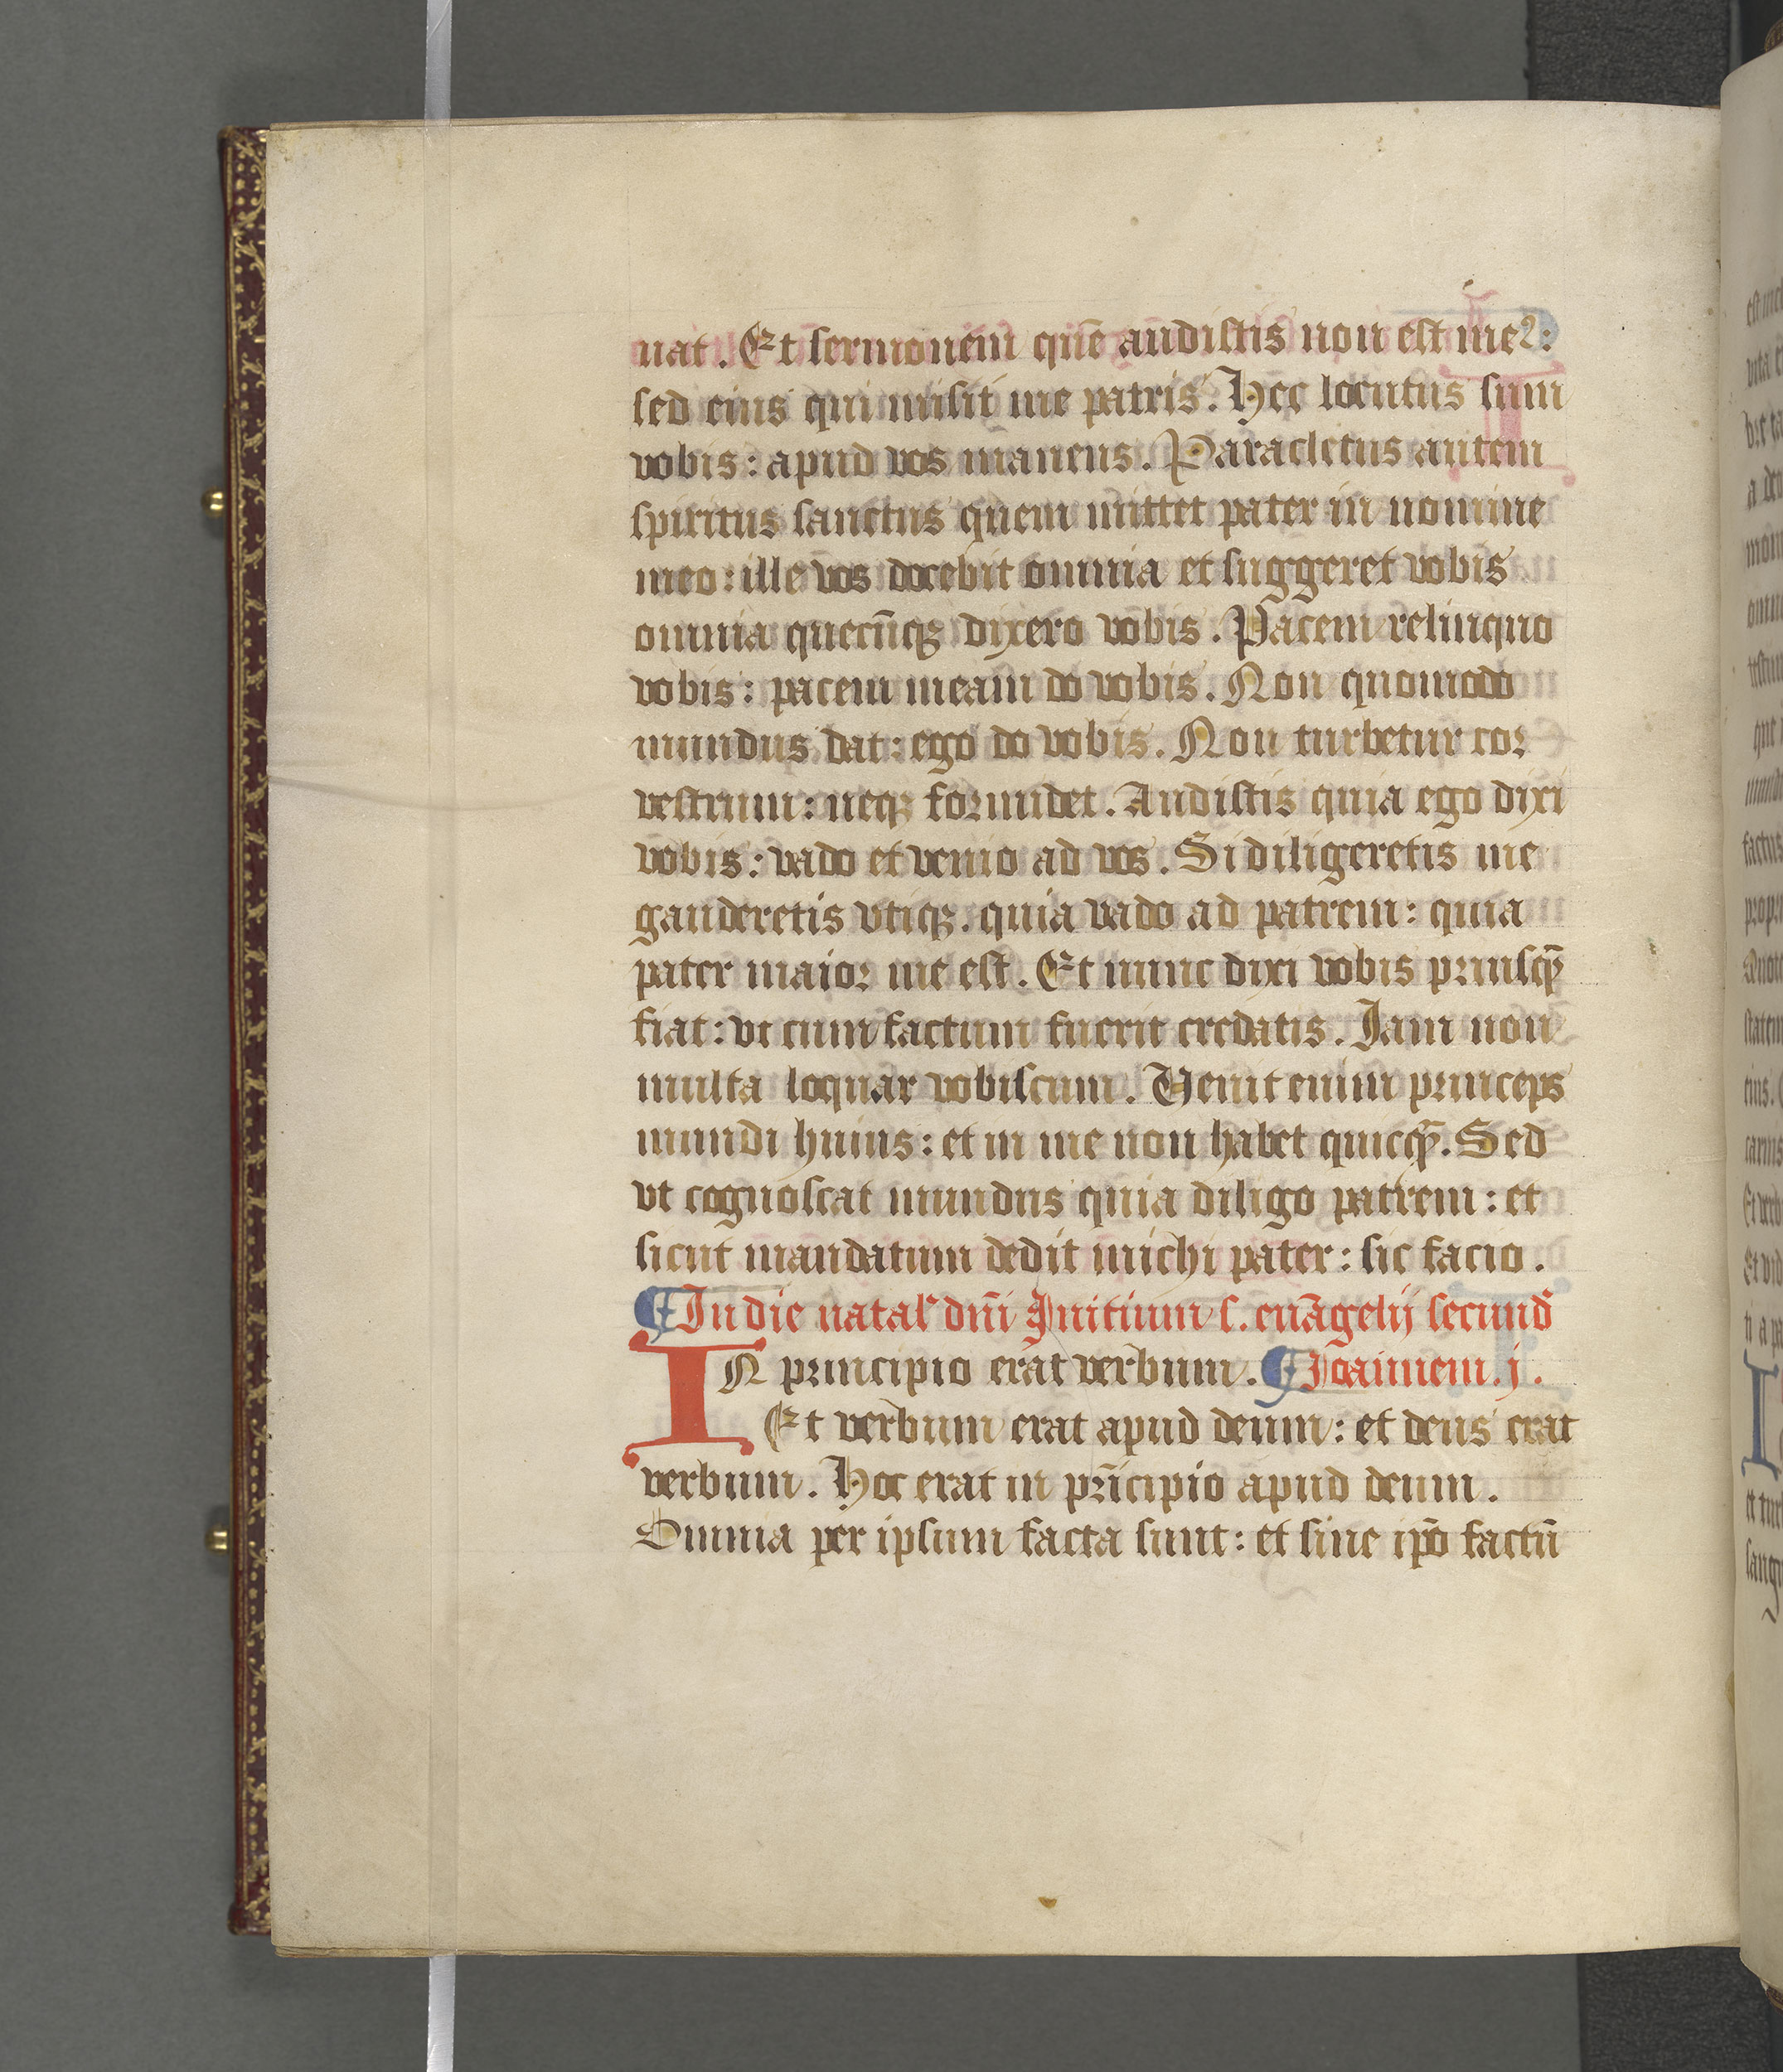 uat. Et sermonem quē audistis non est meꝰ:
sed eius qui misit me patris. Hec locutus sum
vobis: apud vos manens. Paracletus autem
spiritus sanctus quem mittet pater in nomine
meo: ille vos docebit omnia et suggeret vobis
omnia quecūqꝫ dixero vobis. Pacem relinquo
vobis: pacem meam do vobis. Non quomodo
mundus dat: ego do vobis. Non turbetur cor
vestrum: neqꝫ formidet. Audistis quia ego dixi
vobis: vado et venio ad vos. Si diligeretis me
gauderetis vtiqꝫ. quia vado ad patrem: quia
pater maior me est. Et nunc dixi vobis priusqꝫ̄
fiat: vt cum factum fuerit credatis. Iam non
multa loquar vobiscum. Uenit enim princeps
mundi huius: et in me non habet quicqꝫ̄. Sed
vt cognoscat mundus quia diligo patrem: et
sicut mandatum dedit michi pater: sic facio.
¶In die natal' dn̄i Initium s. euāgelij secund'
IN principio erat verbum. ¶Joannem. j.
Et verbum erat apud deum: et deus erat
verbum. Hoc erat in prīcipio apud deum.
Omnia per ipsum facta sunt: et sine ip̄o factū